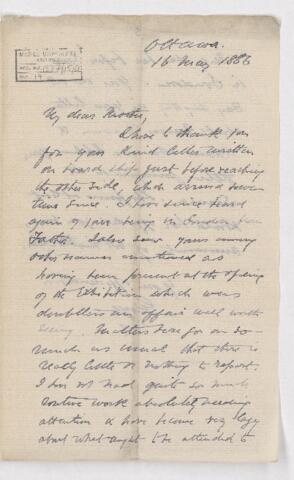 Ottawa.
16 May 1886
My dear
I have to thank you
for your kind letter written
on board ship just before reaching
the other side, which arrived some
time since. I have since heard
again of your being in London from
Father. I also saw yours among
other names mentioned as
having been present at the opening
of the Exhibition which was
doubtless an affair well worth
seeing. Matters here go on so
much as usual that there is
really little or nothing to report.
I do not find quite so much
routine work absolutely needing
attention & have become very lazy
about what ought to be attended to